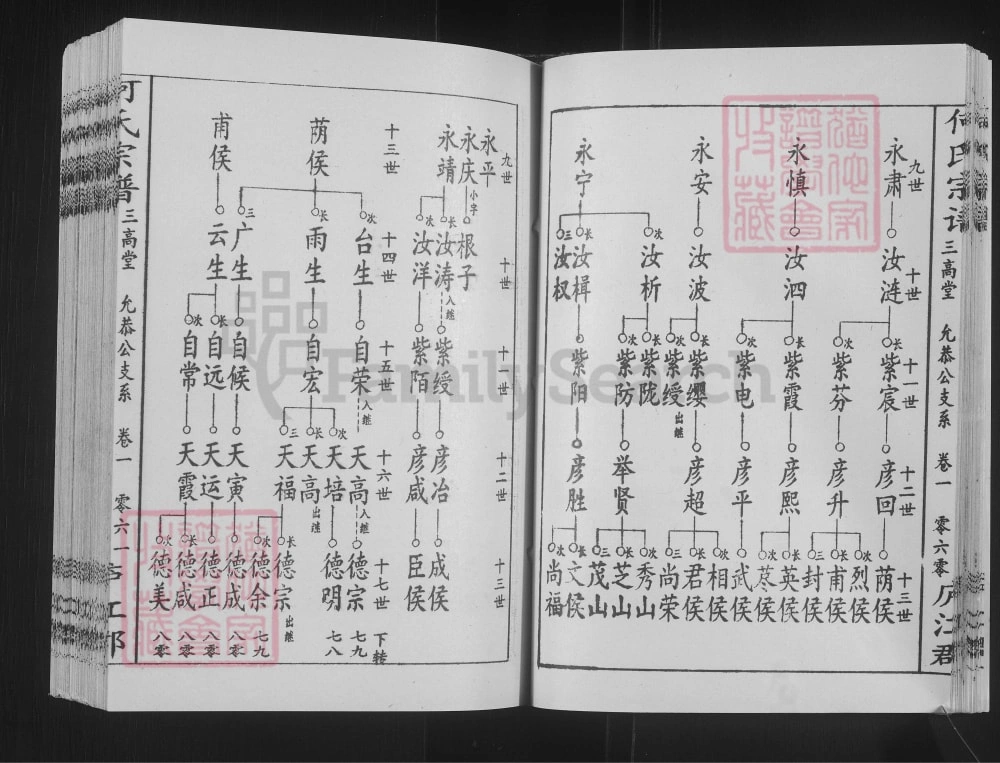 何氏宗谱
三高堂
允恭公支系
卷一
零六零
庐江郡
九世
永肃
永慎
永安
永宁
十世
汝涟
汝泗
汝波
次汝析
长汝楫
三汝权
十一世
长紫宸
次紫芬
长紫霞
次紫电
长紫缨
次紫绶 出继
长紫陇
次紫防
紫阳
十二世
彦回
彦升
彦熙
彦平
彦超
举贤
彦胜
十三世
长荫侯
次烈侯
甫侯
三封侯
长英侯
次荩侯
武侯
次相侯
长君侯
三尚荣
次秀山
长芝山
三茂山
长文侯
次尚福
九世
永平
永庆
永靖
十世
小字根子
长汝涛 入继
次汝洋
十一世
紫绶
紫陌
十二世
彦冶
彦咸
十三世
成侯
臣侯
十三世
荫侯
甫侯
十四世
次台生
长雨生
三广生
云生
十五世
自荣 入继
自宏
自候
长自远
次自常
十六世
天高 入继
次天培
长天高 出继
三天福
天寅
天运
天霞
十七世
德宗
德明
长德宗 出继
次德余
德成
德正
长德咸
次德美
下转
七九
七八
七九
八零
八零
八零
八零
何氏宗谱
三高堂
允恭公支系
卷一
零六一
FamilySearch